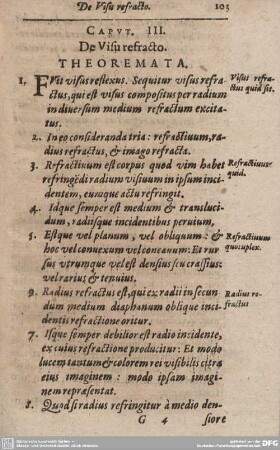 De Visu refracto. 103
CAPVT. III.
De Visu refracto.
THEOREMATA.
1. FVit visus reflexus. Sequitur visus refra-
ctus, qui est visus compositus per radium
in diversum medium refractum excita-
tus.
Visus refra-
ctus quid sit.
2. In eo consideranda tria: refractivum, ra-
dius refractus, & imago refracta.
3. Refractivum est corpus quod vim habet
refringēdi radium visivum in ipsum inci-
dentem, eumque actu refringit.
Refractivum
quid.
4. Idque semper est medium & transluci-
dum, radiisque incidentibus pervium,
5. Estque vel planum, vel obliquum: &
hoc vel convexum vel concavum: Et rur
sus utrumque vel est densius seu crassius:
vel rarius & tenuius.
Refractivum
quotuplex.
9. Radius refractus est, qui ex radii in secun-
dum medium diaphanum oblique inci-
dentis refractione oritur.
Radius re-
fractus
7. Isque semper debilior est radio incidente,
ex cuius refractione producitur: Et modo
lucem tantum & colorem rei visibilis citra
eius imaginem: modo ipsam imagi-
nem repræsentat.
8. Quod si radius refringitur à medio den-
G 4 siore